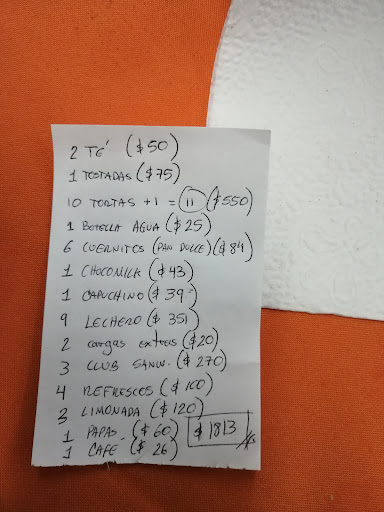 2 TÉ ($50)
1 TOSTADAS ($75)
10 TORTAS +1 = 11 ($550)
1 BOTELLA AGUA ($25)
6 CUERNITOS (PAN DULCE) ($84)
1 CHOCOMILK ($43)
1 CAPUCHINO ($39)
9 LECHERO ($351)
2 cargas extras ($20)
3 CLUB SANW. ($270)
4 REFRESCOS ($100)
3 LIMONADA ($120)
1 PAPAS ($60)
1 CAFE ($26)
$1813